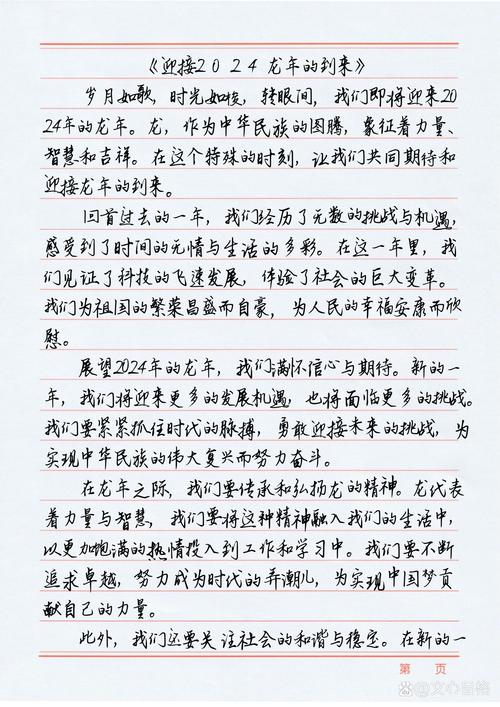 《迎接2024龙年的到来》
岁月如歌，时光如梭，转眼间，我们即将迎来20
24年的龙年。龙，作为中华民族的图腾，象征着力量、
智慧和吉祥。在这个特殊的时刻，让我们共同期待和
迎接龙年的到来。
回首过去的一年，我们经历了无数的挑战与机遇，
感受到了时间的无情与生活的多彩。在这一年里，我
们见证了科技的飞速发展，体验了社会的巨大变革。
我们为祖国的繁荣昌盛而自豪，为人民的幸福安康而欣
慰。
展望2024年的龙年，我们满怀信心与期待。新的一
年，我们将迎来更多的发展机遇，也将面临更多的挑战。
我们要紧紧抓住时代的脉搏，勇敢迎接未来的挑战，为
实现中华民族的伟大复兴而努力奋斗。
在龙年之际，我们要传承和弘扬龙的精神。龙代表
着力量与智慧，我们要将这种精神融入我们的生活中，
以更加饱满的热情投入到工作和学习中。我们要不断
追求卓越，努力成为时代的弄潮儿，为实现中国梦贡
献自己的力量。
此外，我们还要关注社会的和谐与稳定。在新的一
第 页